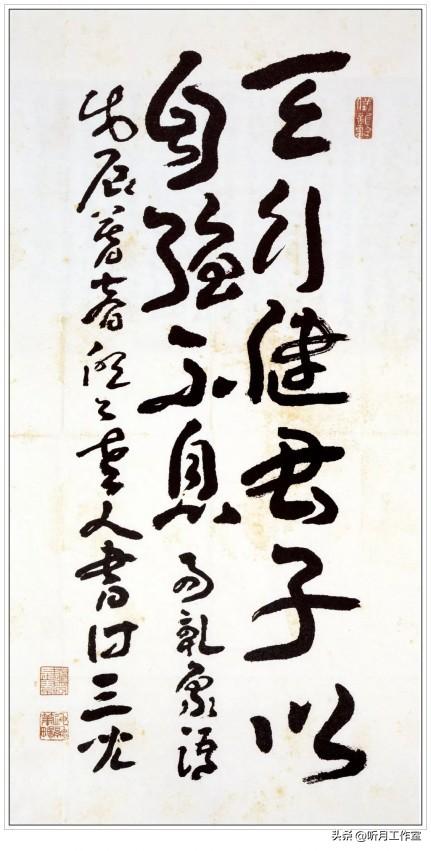 天行健君子以
自強不息 易乾象語
戊辰暮春老人書付三光
头条 @听月工作室